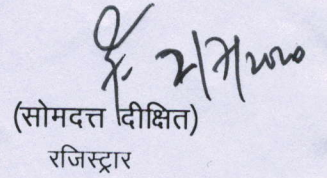 2/7/2020
(सोमदत्त दीक्षित)
रजिस्ट्रार